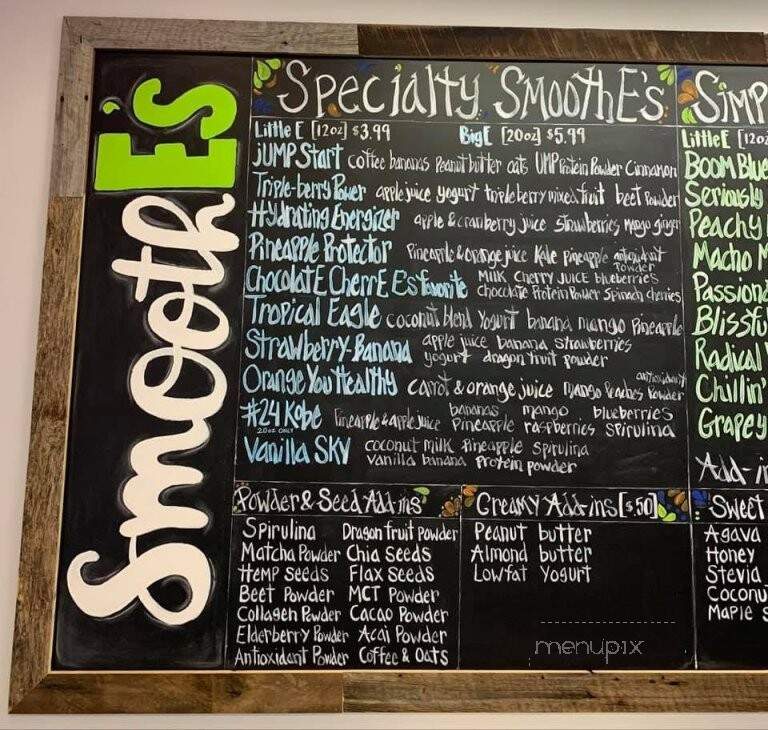 SmoothE's
Specialty SMOOTHE's
Little E [12oz] $3.99 Big E [20oz] $5.99
JUMP Start coffee bananas Peanut butter oats UMP Protein Powder Cinnamon
Triple-berry Power apple juice yogurt triple berry mixed fruit beet Powder
Hydrating Energizer apple & cranberry juice strawberries mango ginger
Pineapple Protector Pineapple & orange juice Kale pineapple antioxidant Powder
ChocolatE CherrE E's favorite Milk CHERRY JUICE blueberries
chocolate Protein Powder Spinach cherries
Tropical Eagle coconut blend Yogurt banana mango Pineapple
Strawberry-Banana apple juice banana strawberries
yogurt dragon fruit powder
Orange You Healthy carrot & orange juice mango Peaches antioxidant Powder
#24 Kobe 20oz ONLY Pineapple & apple juice bananas mango blueberries
Pineapple raspberries spirulina
Vanilla SKY coconut milk Pineapple Spirulina
vanilla banana protein powder
Powder & Seed Add ins
Spirulina Dragon fruit powder
Matcha Powder Chia Seeds
Hemp Seeds Flax Seeds
Beet Powder MCT Powder
Collagen Powder Cacao Powder
Elderberry Powder Acai Powder
Antioxidant Powder Coffee & Oats
Creamy Add-ins [$.50]
Peanut butter
Almond butter
Lowfat Yogurt
SIMP
Little E [12oz
BOOM Blue
Seriously
Peachy
Macho M
Passion
Blissfu
Radical
Chillin'
Grapey
Add-in
Sweet
Agava
Honey
Stevia
Coconu
Maple S
menupix